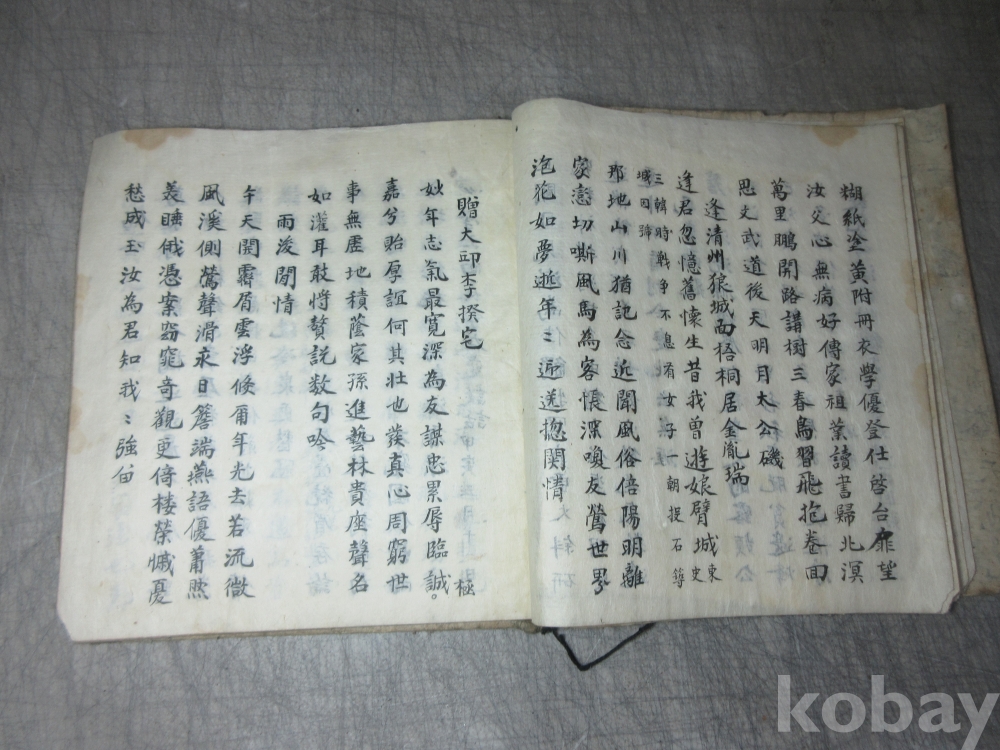 糊紙塗黃附冊衣學優登仕啓台扉望
汝父心無病好傳家祖業讀書歸北溟
萬里鵬開路講樹三春鳥習飛抱卷回
思文武道後天明月太公磯
逢清州狼城面梧桐居金胤瑞
逢君忽憶舊懷生昔我曾遊娘臂城東史
三韓時戰爭不息有女子一朝捉石築
城因號
那地山川猶記念近聞風俗倍陽明離
家戀切嘶風馬為客悵深喚友鶯世界
泡花如夢逝年〻迎送摠関情
贈大邱李揆宅
妙年志氣最寬深為友謀忠累辱臨誠。極
嘉兮貽厚誼何其壯也發真心周窮世
事無虛地積蔭家孫進藝林貴座聲名
如灌耳敢將贅說数句吟
雨後閒情
午天開霽屑雲浮倏爾年光去若流微
風溪側鶯聲滑永日簷端燕語優蕭然
美睡俄憑案窈窕奇觀更倚楼榮慽憂
愁成玉汝為君知我〻強
kobay